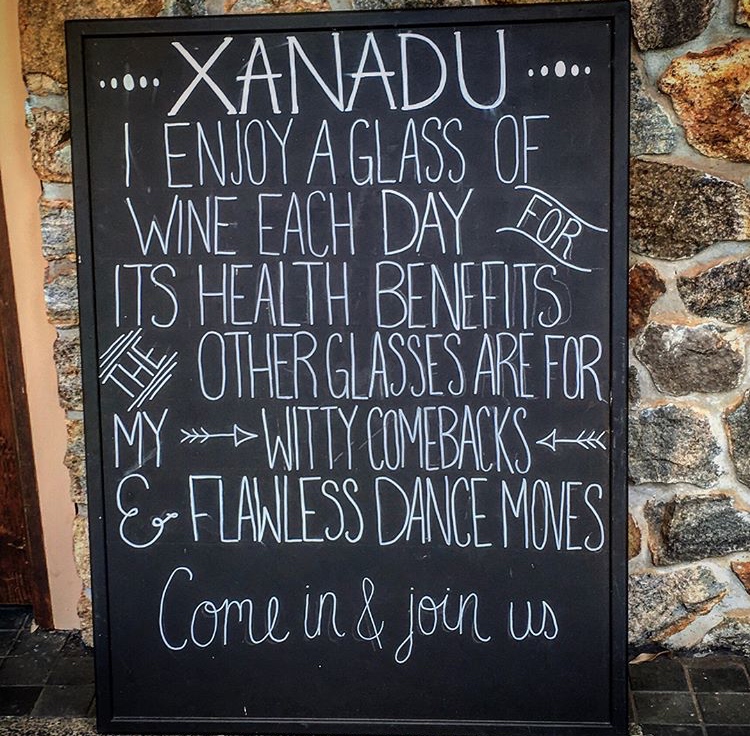 XANADU
I ENJOY A GLASS OF
WINE EACH DAY FOR
ITS HEALTH BENEFITS
THE OTHER GLASSES ARE FOR
MY WITTY COMEBACKS
& FLAWLESS DANCE MOVES
Come in & join us